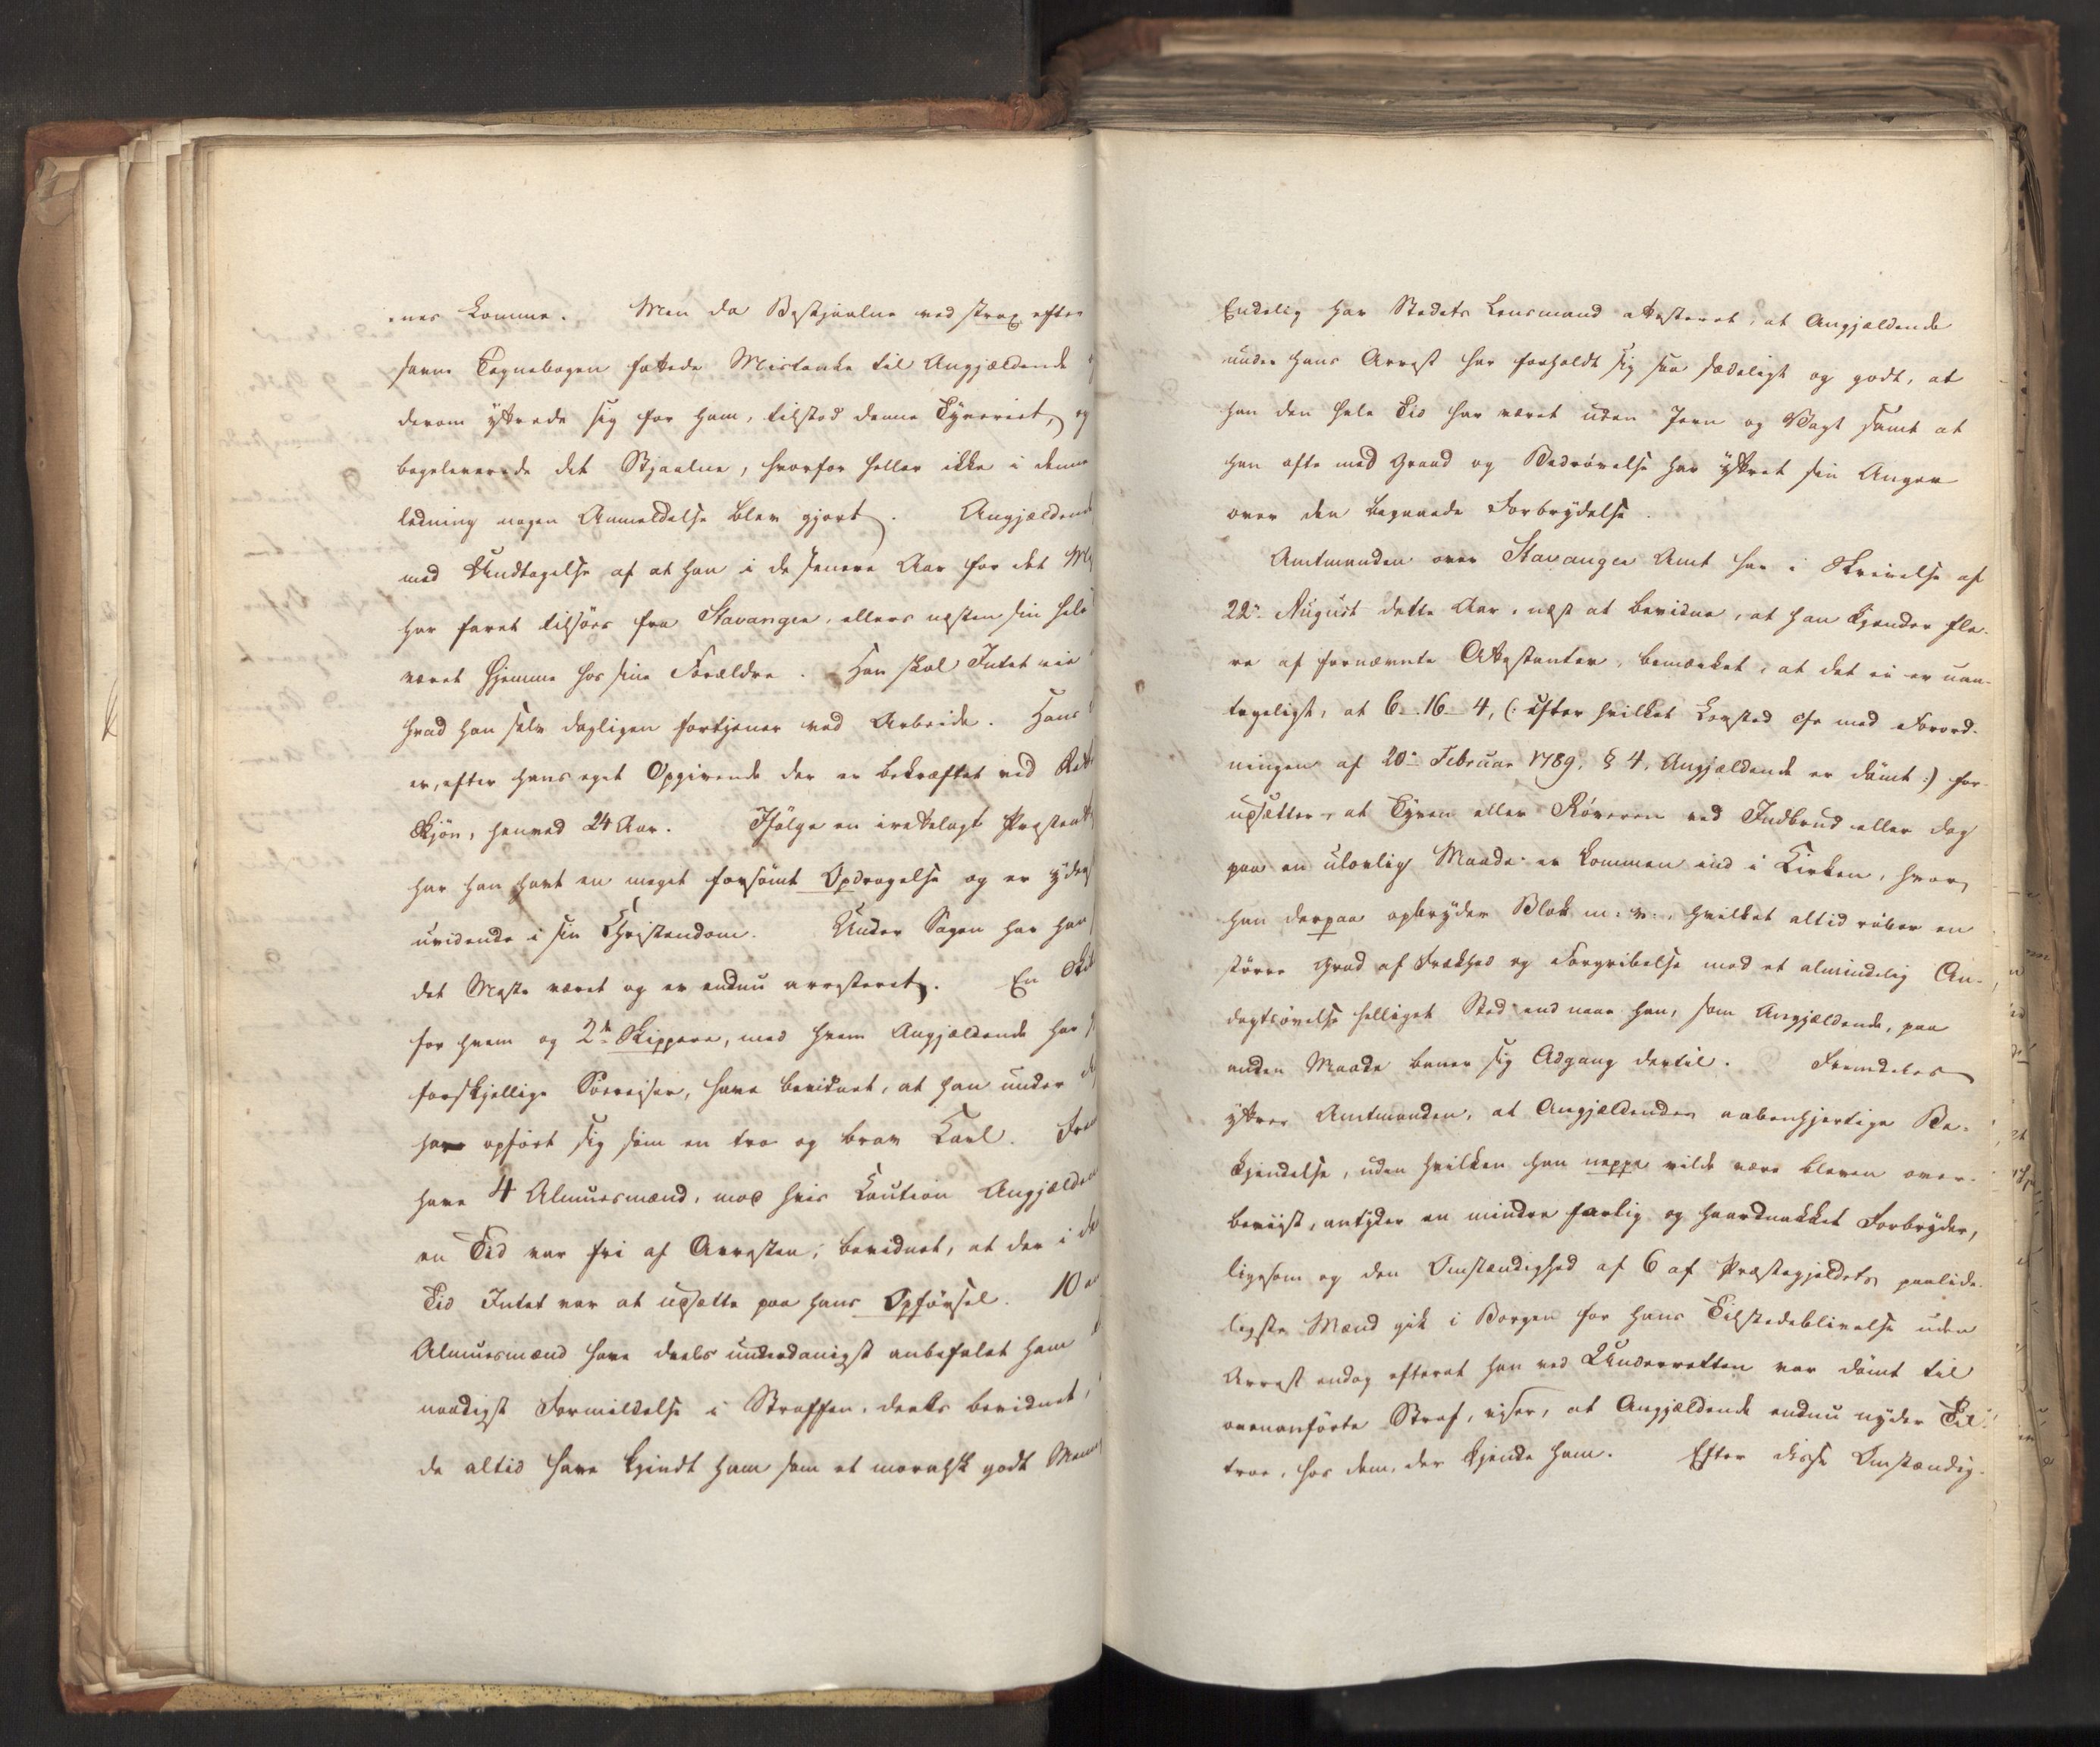 nes komme. Men da Bestjaalne ved strax efter
savne Tegnebogen fattede Mistanke til Angjældende
derom yttrede sig for ham, tilstod denne Tyveriet, og
begeleverede det Stjaalne, hvorfor heller ikke i denne
ledning nogen Anmeldelse blev gjort. Angjældend
med Undtagelse af at han i de senere Aar for det M
har faret tilsöes fra Stavanger, ellers næsten sin hele
været hjemme hos sine Forældre. Han skal Intet eie
hvad han selv dagligen fortjener ved Arbeide. Hans
er, efter hans eget Opgivende der er bekræftet ved Ret
Skjön, henved 24 Aar. Ifölge en irettelagt Præsteatt
har han havt en meget forsömt Opdragelse og er yders
uvidende i sin Christendom. Under Sagen har han
det Meste været og er endnu arresteret. En Ski
for hvem og 2de Skippere, med hvem Angjældende har
forskjellige Söereiser, have bevidnet, at han under
have opfört sig som en tro og brav Karl. Frem
have 4 Almuesmænd, mod hvis Caution Angjælden
en Tid var fri af Arresten, bevidnet, at der i de
Tid Intet var at udsætte paa hans Opförsel. 10
Almuesmænd have deels underdanigst anbefalet ham
naadigst Formildelse i Straffen, deels bevidnet,
de altid have kjendt ham som et moralsk godt Men
Endelig har Stedets Lensmand attesteret, at Angjældende
under hans Arrest har forholdt sig saa sædeligt og godt, at
han den hele Tid har været uden Jern og Vagt samt at
han ofte med Graad og Bedrövelse har yttret sin Anger
over den begaaede Forbrydelse.
Amtmanden over Stavanger Amt har i Skrivelse af
22de August dette Aar, næst at bevidne, at han kjender fle-
re af fornævnte Attestanter, bemærket, at det ei er uan-
tageligt, at 6-16-4, (: efter hvilket Lovsted cfr med Forord-
ningen af 20de Februar 1789, § 4, Angjældende er dömt :) for-
udsætter, at Tyven eller Röveren ved Indbrud eller dog
paa en ulovlig Maade er kommen ind i Kirken, hvor
han derpaa opbryder Blok m: v:, hvilket altid röber en
större Grad af Frækhed og Forgribelse mod et almindelig An-
dagtsövelse helliget Sted end naar han, som Angjældende, paa
anden Maade baner sig Adgang dertil. Fremdeles
yttrer Amtmanden, at Angjældendes aabenhjertige Be-
kjendelse, uden hvilken han neppe vilde være bleven over-
beviist, antyder en mindre farlig og haardnakket Forbryder,
ligesom og den Omstændighed at 6 af Præstegjeldets paalide-
ligste Mænd gik i Borgen for hans Tilstedeblivelse uden
Arrest endog efterat han ved Underretten var dömt til
ovenanförte Straf, viser, at Angjældende endnu nyder Til-
troe, hos dem, der kjende ham. Efter disse Omstændig-